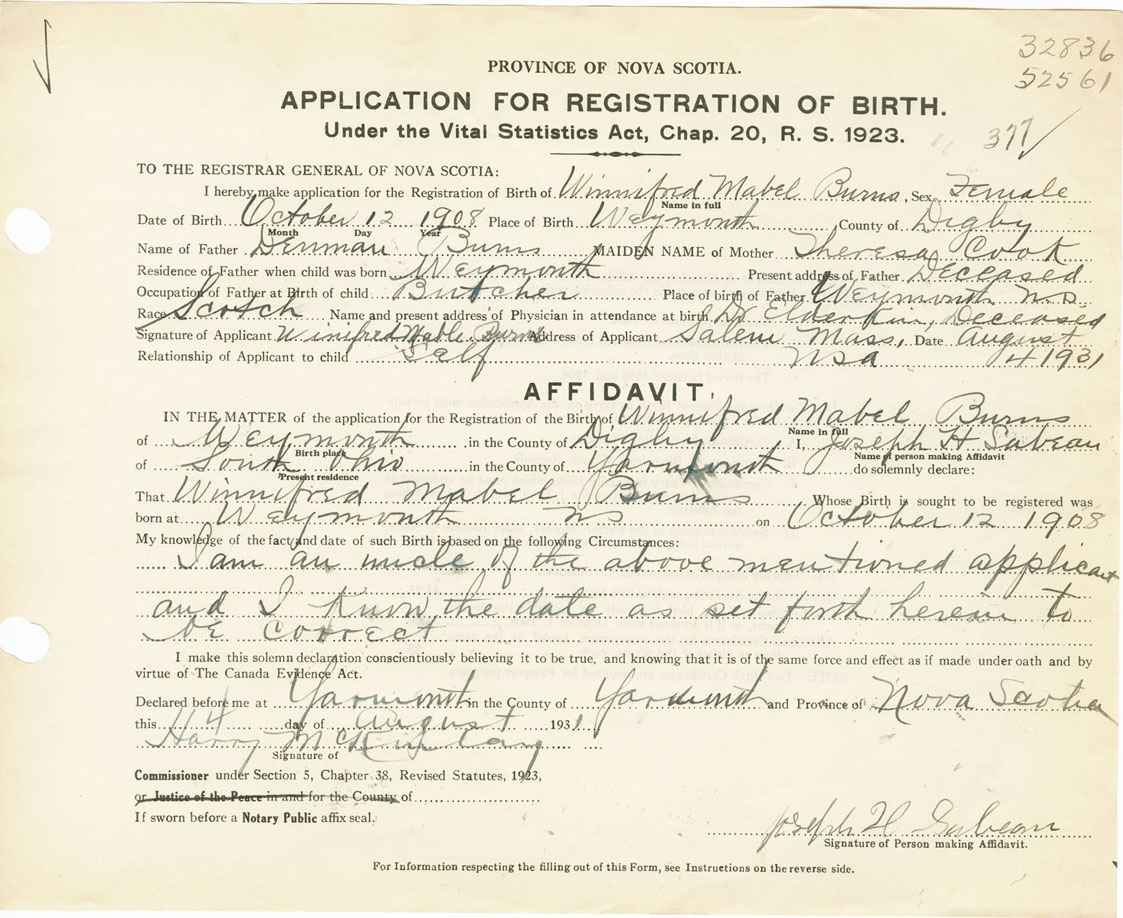 32836
52561
PROVINCE OF NOVA SCOTIA.
APPLICATION FOR REGISTRATION OF BIRTH.
Under the Vital Statistics Act, Chap. 20, R. S. 1923.
377
TO THE REGISTRAR GENERAL OF NOVA SCOTIA:
I hereby make application for the Registration of Birth of Winnifred Mabel Burns, Sex Female
Name in full
Date of Birth October 12 1908 Place of Birth Weymouth County of Digby
Month Day Year
Name of Father Denman Burns MAIDEN NAME of Mother Theresa Cook
Residence of Father when child was born Weymouth Present address of Father Deceased
Occupation of Father at Birth of child Butcher Place of birth of Father Weymouth N.S.
Race Scotch Name and present address of Physician in attendance at birth Dr Elderkin, Deceased
Signature of Applicant Winifred Mable Burns Address of Applicant Salem Mass, Date August
Relationship of Applicant to child Self USA 4 1931
AFFIDAVIT.
IN THE MATTER of the application for the Registration of the Birth of Winnifred Mabel Burns
Name in full
of Weymouth in the County of Digby I, Joseph H Sabean
Birth place Name of person making Affidavit
of South Ohio in the County of Yarmouth do solemnly declare:
Present residence
That Winnifred Mabel Burns Whose Birth is sought to be registered was
born at Weymouth NS on October 12 1908
My knowledge of the fact and date of such Birth is based on the following Circumstances:
I am an uncle of the above mentioned applicant
and I know the date as set forth herein to
be correct
I make this solemn declaration conscientiously believing it to be true, and knowing that it is of the same force and effect as if made under oath and by
virtue of The Canada Evidence Act.
Declared before me at Yarmouth in the County of Yarmouth and Province of Nova Scotia
this 4 day of August 1931
Harry McKinlay
Signature of
Commissioner under Section 5, Chapter 38, Revised Statutes, 1923,
or Justice of the Peace in and for the County of
If sworn before a Notary Public affix seal.
Joseph H Sabean
Signature of Person making Affidavit.
For Information respecting the filling out of this Form, see Instructions on the reverse side.